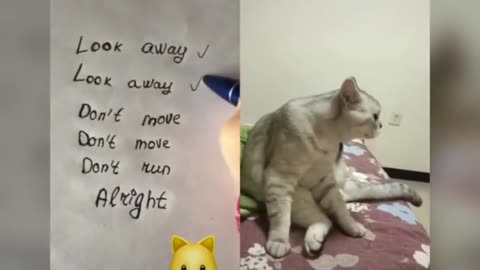 Look away ✓
Look away ✓
Don't move
Don't move
Don't run
Alright